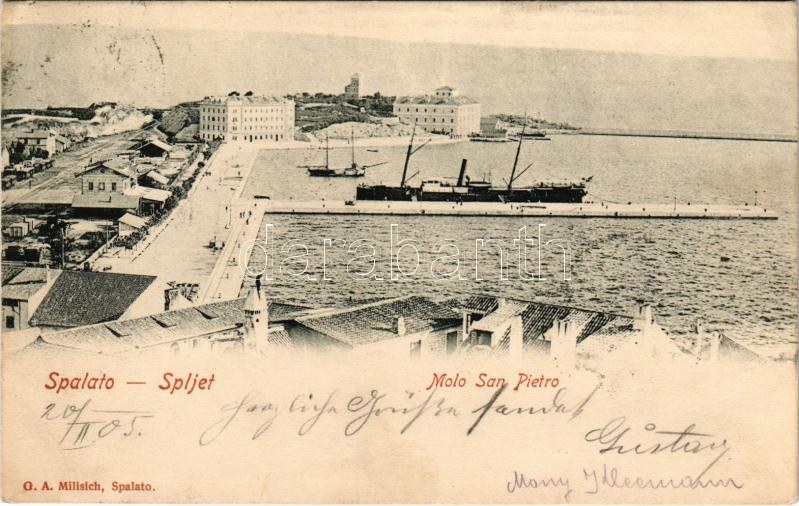 darabanth
Spalato — Spljet
Molo San Pietro
20/II 05.
herzliche Grüße sendet
Gustav
Mony Kleemann
G. A. Milisich, Spalato.